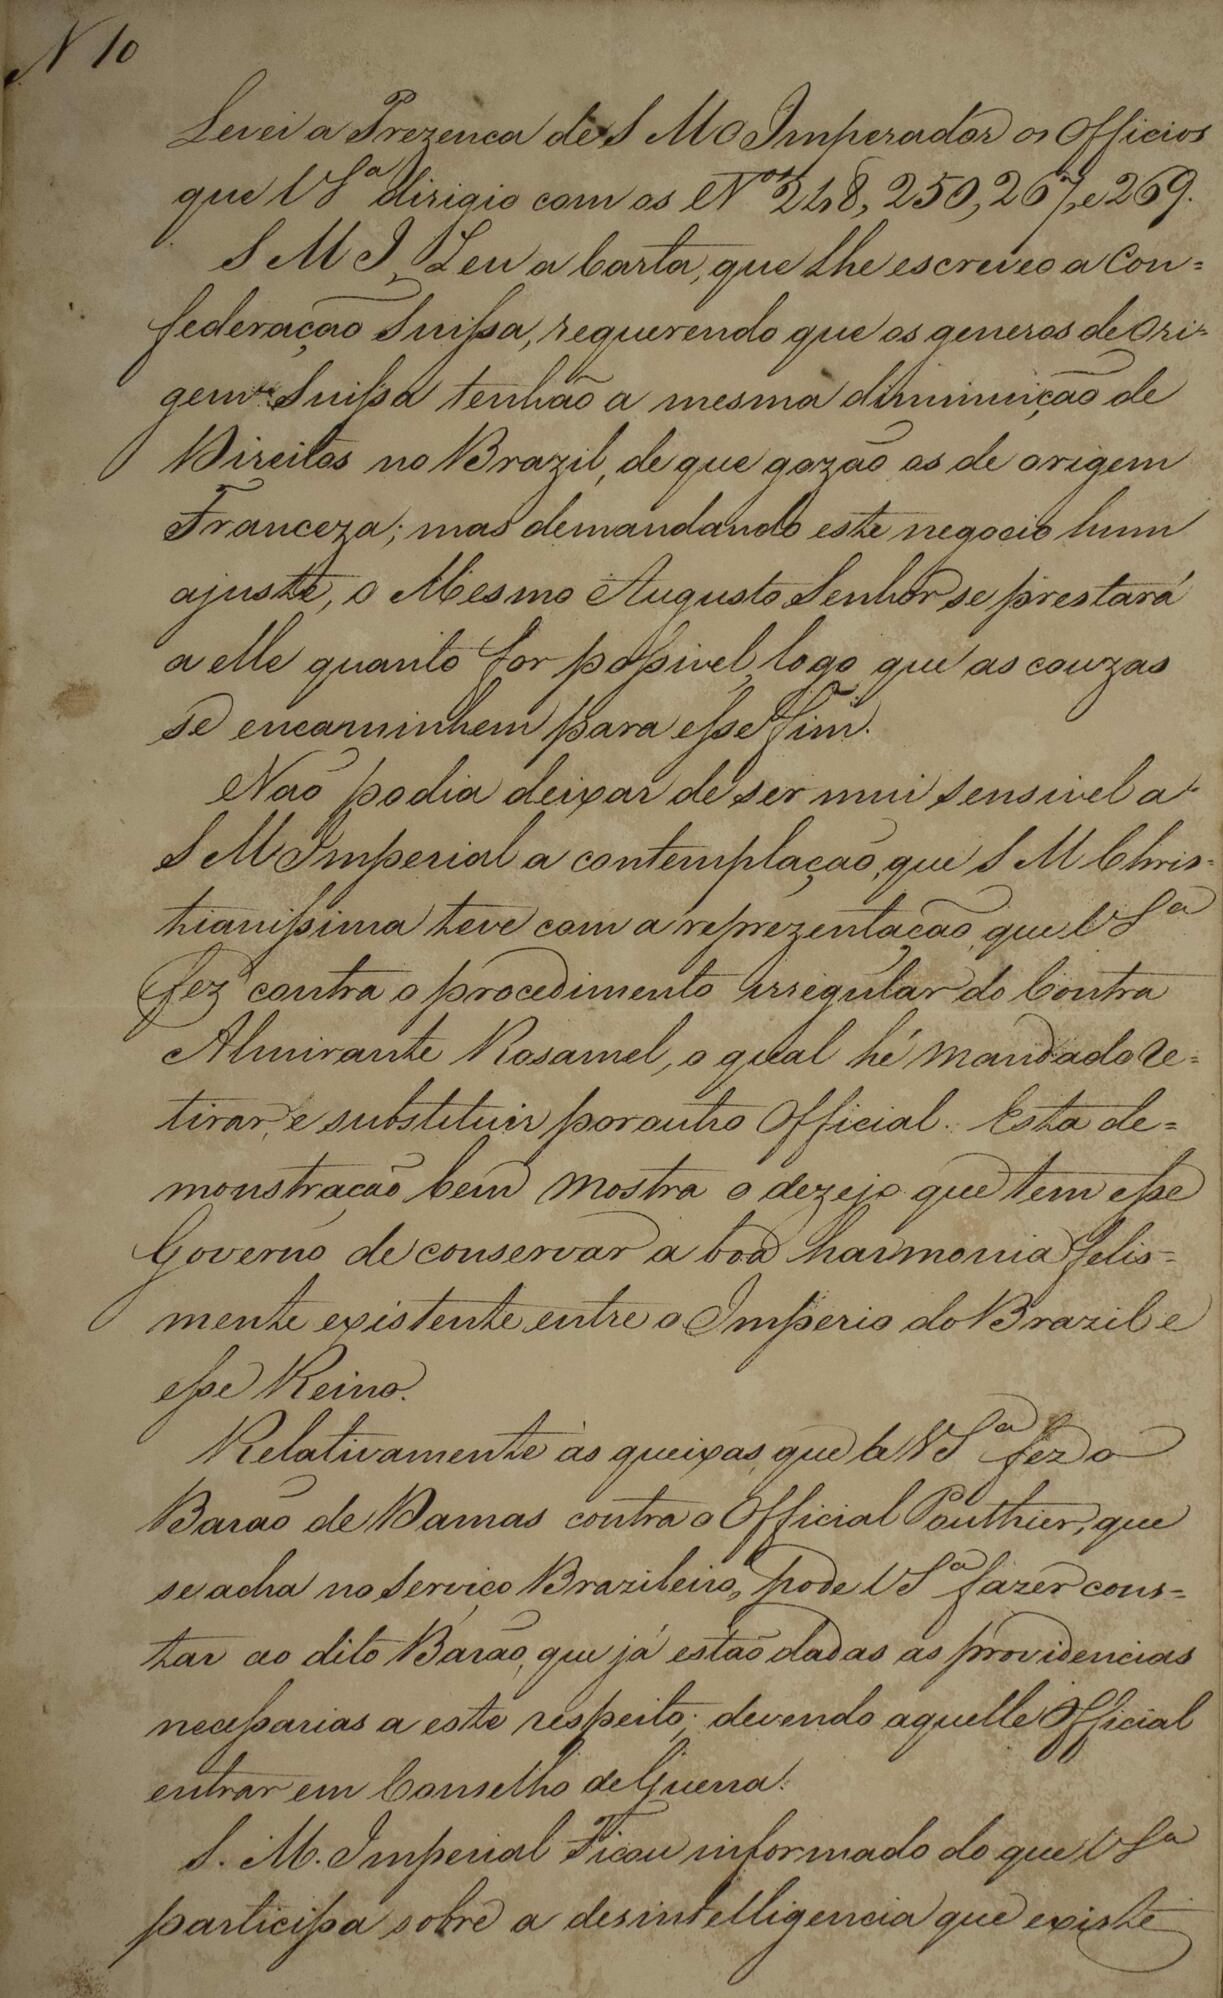 N 10
Levei a Prezenca de S M O Imperador os Officios
que V Sª dirigio com os Nos 248, 250, 267, e 269.
S M I, Leu a Carta, que Lhe escreveo a Con=
federação Suissa, requerendo que os generos de Ori=
gem Suissa tenhão a mesma diminuição de
Direitos no Brazil, de que gozão os de origem
Franceza; mas demandando este negocio hum
ajuste, o Mesmo Augusto Senhor se prestará
a elle quanto for possivel, logo que as couzas
se encaminhem para esse fim.
Não podia deixar de ser mui sensivel a
S M Imperial a contemplação, que S M Chris=
tianissima teve com a reprezentação, que V Sª
fez contra o procedimento irregular do Contra
Almirante Rosamel, o qual hé mandado re=
tirar, e substituir por outro Official. Esta de=
monstração bem mostra o dezejo que tem esse
Governo de conservar a boa harmonia felis=
mente existente entre o Imperio do Brazil e
esse Reino.
Relativamente às queixas, que a V Sª fez o
Barão de Damas contra o Official Pouthier, que
se acha no Serviço Brazileiro, pode V Sª fazer cons=
tar ao dito Barão, que já estão dadas as providencias
necessarias a este respeito; devendo aquelle Official
entrar em Conselho de Guerra.
S. M. Imperial Ficou informado do que V Sª
participa sobre a desintelligencia que existe